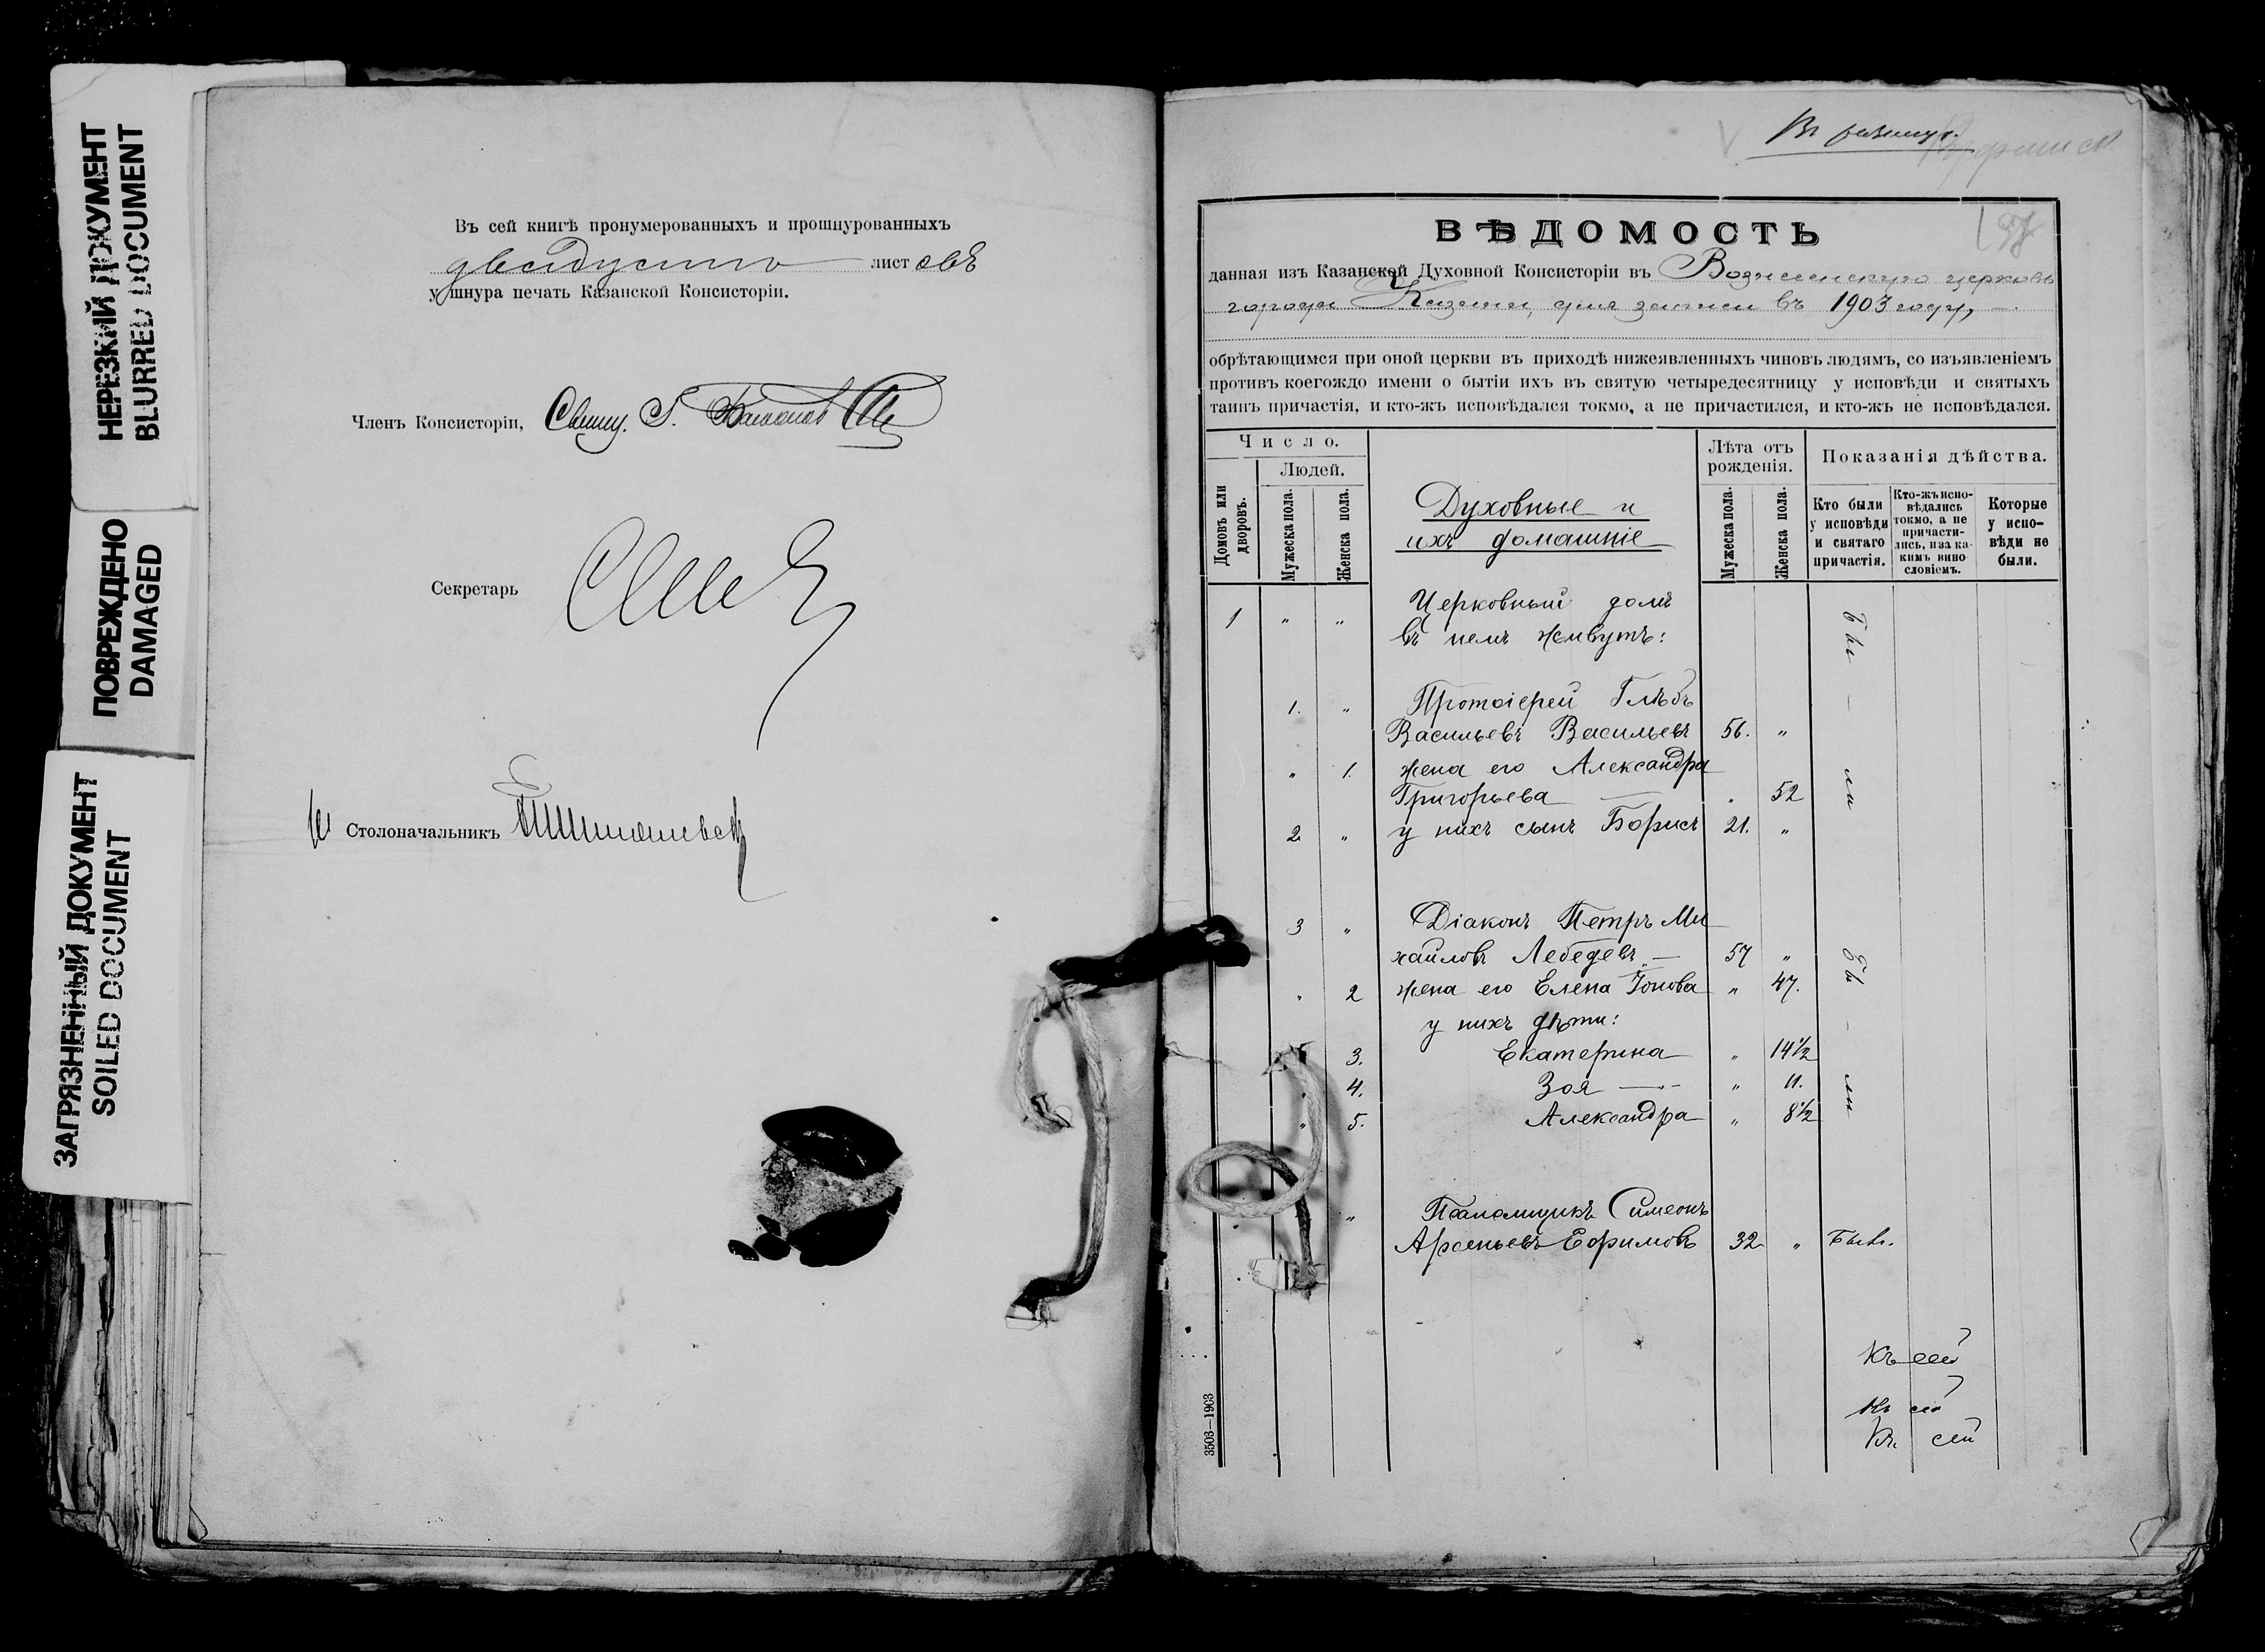 НЕРЕЗКИЙ ДОКУМЕНТ
BLURRED DOCUMENT
ПОВРЕЖДЕНО
DAMAGED
ЗАГРЯЗНЕННЫЙ ДОКУМЕНТ
SOILED DOCUMENT
Въ сей книгѣ пронумерованныхъ и прошнурованныхъ
двѣсти листовъ
у шнура печать Казанской Консисторіи.
Членъ Консисторіи, Свящ.
Секретарь
Столоначальникъ
ВѢДОМОСТЬ
данная изъ Казанской Духовной Консисторіи въ Вознесенскую церковь
города Казани, для записи въ 1903 году,
обрѣтающимся при оной церкви въ приходѣ нижеявленныхъ чиновъ людямъ, со изъявленіемъ
противъ коегождо имени о бытіи ихъ въ святую четыредесятницу у исповѣди и святыхъ
таинъ причастія, и кто-жъ исповѣдался токмо, а не причастился, и кто-жъ не исповѣдался.
Число.
Людей.
Домовъ или дворовъ.
Мужеска пола.
Женска пола.
Духовные и
ихъ домашніе
Лѣта отъ
рожденія.
Мужеска пола.
Женска пола.
Показанія дѣйства.
Кто были
у исповѣди
и святаго
причастія.
Кто-жъ испо-
вѣдались
токмо, а не
причасти-
лись, и за ка-
кимъ вино-
словіемъ.
Которые
у испо-
вѣди не
были.
1 " " Церковный домъ
въ немъ живутъ:
1. " Протоіерей Глѣбъ
Васильевъ Васильевъ 56. "
" 1. жена его Александра
Григорьева " 52
2 " у нихъ сынъ Борисъ 21. "
Бы — ли
3 " Діаконъ Петръ Ми
хайловъ Лебедевъ — 57 "
" 2 жена его Елена Іонова " 47.
у нихъ дѣти:
3. Екатерина " 14½
" 4. Зоя " 11.
" 5. Александра " 8½
Бы — ли
" Псаломщикъ Симеонъ
Арсеньевъ Ефимовъ 32 " Былъ.
Къ сей
Къ сей
Къ сей
3503—1903